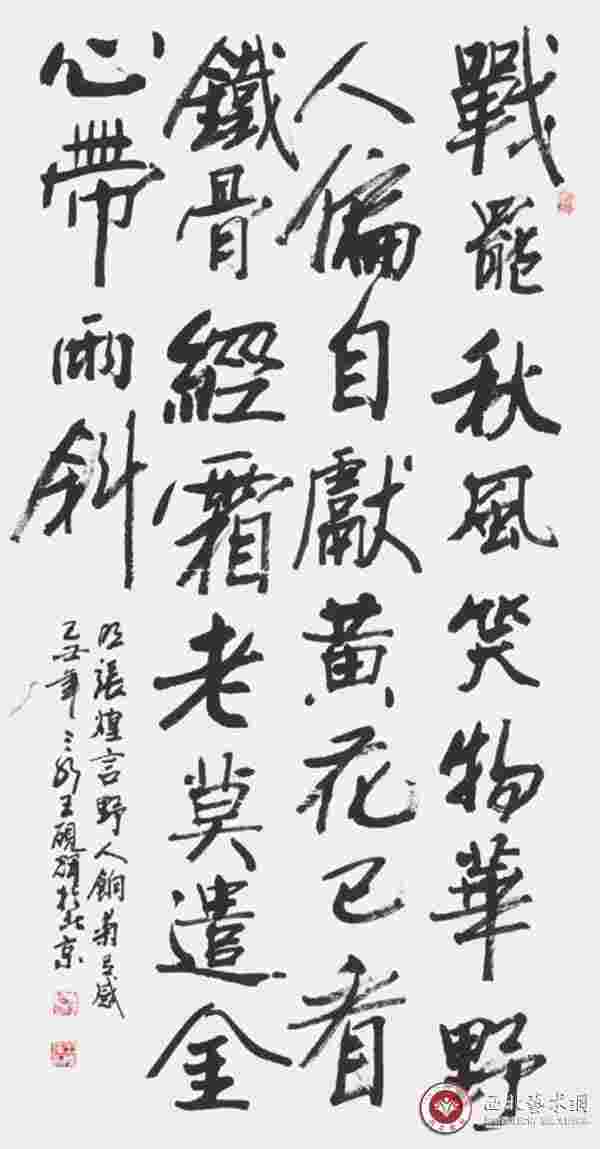 戰罷秋風笑物華野
人偏自獻黃花已看
鐵骨經霜老莫遣金
心帶雨斜
明張煌言野人餉菊有感
己丑年王硯於北京
西北藝術網